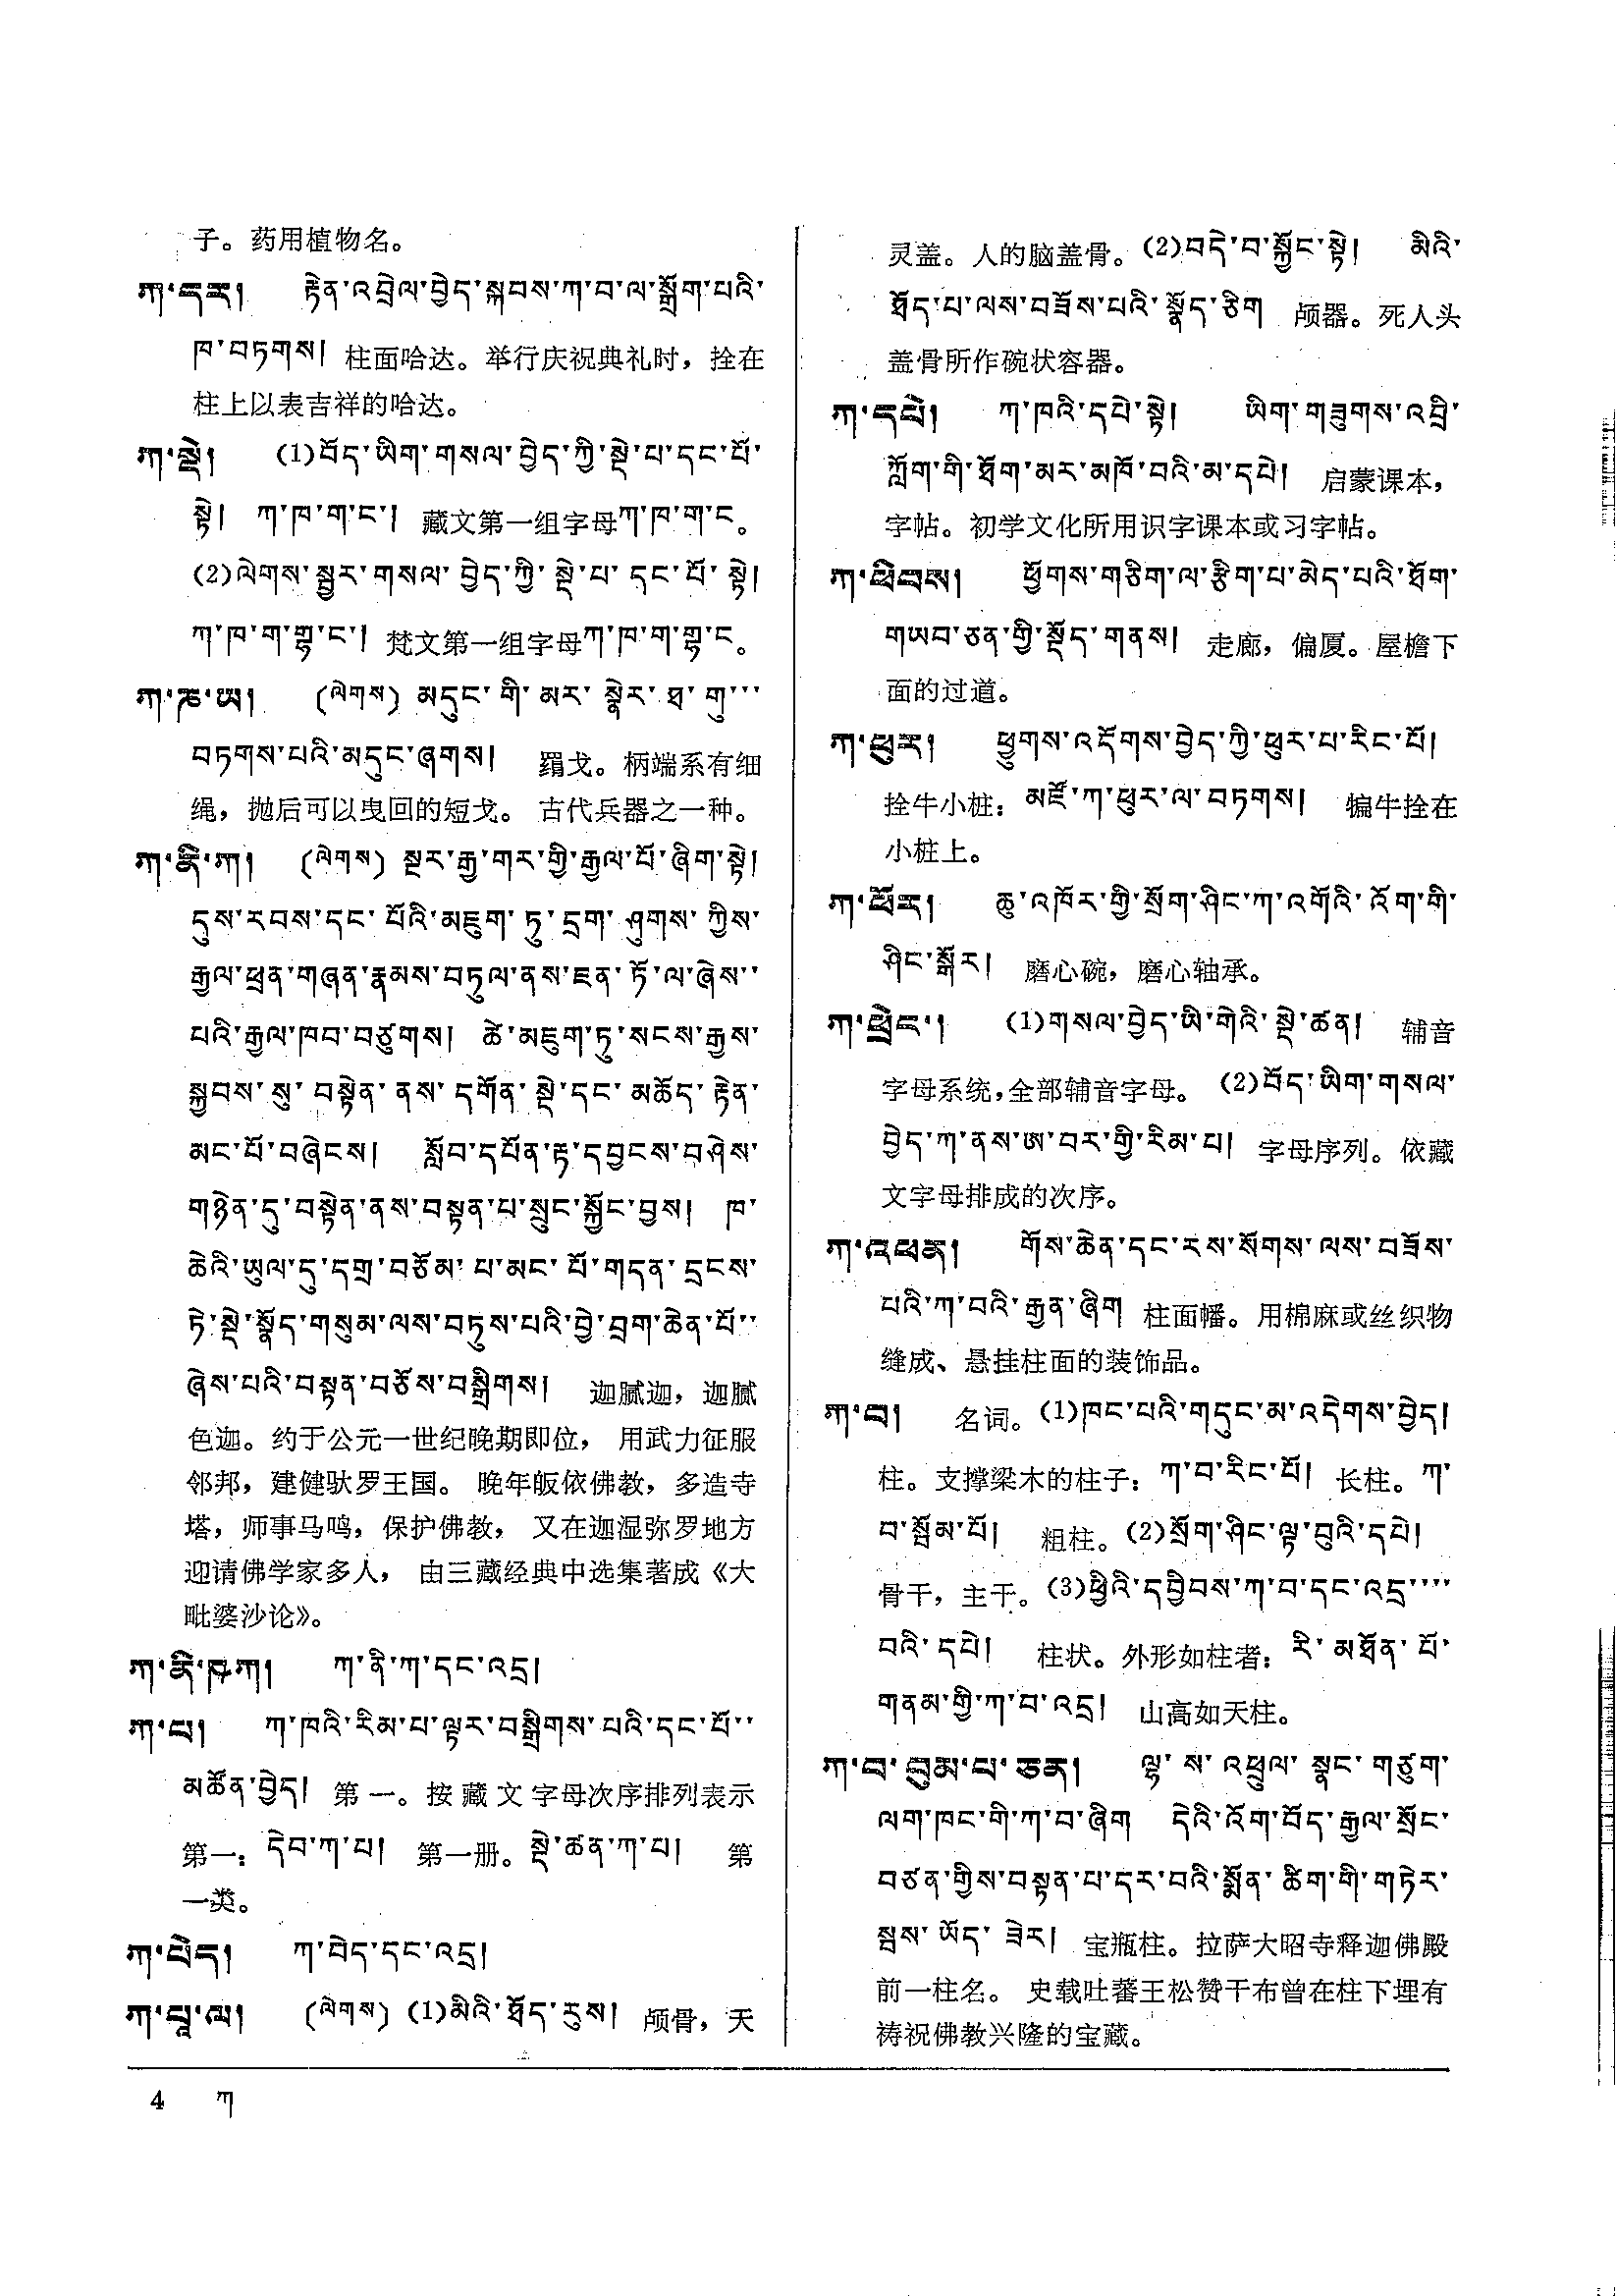 子。药用植物名。
ཀ་དར། རྟེན་འབྲེལ་བྱེད་སྐབས་ཀ་བ་ལ་སྒྲོག་པའི་
ཁ་བཏགས། 柱面哈达。举行庆祝典礼时，拴在
柱上以表吉祥的哈达。
ཀ་སྡེ། (1)བོད་ཡིག་གསལ་བྱེད་ཀྱི་སྡེ་པ་དང་པོ་
སྟེ། ཀ་ཁ་ག་ང་། 藏文第一组字母ཀ་ཁ་ག་ང。
(2)ལེགས་སྦྱར་གསལ་བྱེད་ཀྱི་སྡེ་པ་དང་པོ་སྟེ།
ཀ་ཁ་ག་གྷ་ང་། 梵文第一组字母ཀ་ཁ་ག་གྷ་ང。
ཀ་ཎ་ཡ། (ལེགས) མདུང་གི་མར་སྣེར་ཐ་གུ་་་
བཏགས་པའི་མདུང་ཞགས། 羂戈。柄端系有细
绳，抛后可以曳回的短戈。古代兵器之一种。
ཀ་ནི་ཀ། (ལེགས) སྔར་རྒྱ་གར་གྱི་རྒྱལ་པོ་ཞིག་སྟེ།
དུས་རབས་དང་པོའི་མཇུག་ཏུ་དྲག་ཤུགས་ཀྱིས་
རྒྱལ་ཕྲན་གཞན་རྣམས་བཏུལ་ནས་ཇན་ཏོ་ལ་ཞེས་་
པའི་རྒྱལ་ཁབ་བཙུགས། ཚེ་མཇུག་ཏུ་སངས་རྒྱས་
སྐྱབས་སུ་བསྟེན་ནས་དགོན་སྡེ་དང་མཆོད་རྟེན་
མང་པོ་བཞེངས། སློབ་དཔོན་རྟ་དབྱངས་བཤེས་
གཉེན་དུ་བསྟེན་ནས་བསྟན་པ་སྲུང་སྐྱོང་བྱས། ཁ་
ཆེའི་ཡུལ་དུ་དགྲ་བཅོམ་པ་མང་པོ་གདན་དྲངས་
ཏེ་སྡེ་སྣོད་གསུམ་ལས་བཏུས་པའི་བྱེ་བྲག་ཆེན་པོ་་
ཞེས་པའི་བསྟན་བཅོས་བསྒྲིགས། 迦腻迦，迦腻
色迦。约于公元一世纪晚期即位，用武力征服
邻邦，建健驮罗王国。晚年皈依佛教，多造寺
塔，师事马鸣，保护佛教，又在迦湿弥罗地方
迎请佛学家多人，由三藏经典中选集著成《大
毗婆沙论》。
ཀ་ནི་ཥྐ། ཀ་ནི་ཀ་དང་འདྲ།
ཀ་པ། ཀ་ཁའི་རིམ་པ་ལྟར་བསྒྲིགས་པའི་དང་པོ་་
མཚོན་བྱེད། 第一。按藏文字母次序排列表示
第一：དེབ་ཀ་པ། 第一册。སྡེ་ཚན་ཀ་པ། 第
一类。
ཀ་པེད། ཀ་བེད་དང་འདྲ།
ཀ་པཱ་ལ། (ལེགས) (1)མིའི་ཐོད་རུས། 颅骨，天
灵盖。人的脑盖骨。(2)བདེ་བ་སྐྱོང་སྟེ། མིའི་
ཐོད་པ་ལས་བཟོས་པའི་སྣོད་ཅིག 颅器。死人头
盖骨所作碗状容器。
ཀ་དཔེ། ཀ་ཁའི་དཔེ་སྟེ། ཡིག་གཟུགས་འབྲི་
ཀློག་གི་ཐོག་མར་མཁོ་བའི་མ་དཔེ། 启蒙课本，
字帖。初学文化所用识字课本或习字帖。
ཀ་ཕིབས། ཕྱོགས་གཅིག་ལ་རྩིག་པ་མེད་པའི་ཐོག་
གཡབ་ཅན་གྱི་སྡོད་གནས། 走廊，偏厦。屋檐下
面的过道。
ཀ་ཕུར། ཕྱུགས་འདོགས་བྱེད་ཀྱི་ཕུར་པ་རིང་པོ།
拴牛小桩：མཛོ་ཀ་ཕུར་ལ་བཏགས། 犏牛拴在
小桩上。
ཀ་ཕོར། ཆུ་འཁོར་གྱི་སྲོག་ཤིང་ཀ་འགོའི་འོག་གི་
ཤིང་སྐོར། 磨心碗，磨心轴承。
ཀ་ཕྲེང་། (1)གསལ་བྱེད་ཡི་གེའི་སྡེ་ཚན། 辅音
字母系统，全部辅音字母。(2)བོད་ཡིག་གསལ་
བྱེད་ཀ་ནས་ཨ་བར་གྱི་རིམ་པ། 字母序列。依藏
文字母排成的次序。
ཀ་འཕན། གོས་ཆེན་དང་རས་སོགས་ལས་བཟོས་
པའི་ཀ་བའི་རྒྱན་ཞིག 柱面幡。用棉麻或丝织物
缝成、悬挂柱面的装饰品。
ཀ་བ། 名词。(1)ཁང་པའི་གདུང་མ་འདེགས་བྱེད།
柱。支撑梁木的柱子：ཀ་བ་རིང་པོ། 长柱。ཀ་
བ་སྦོམ་པོ། 粗柱。(2)སྲོག་ཤིང་ལྟ་བུའི་དཔེ།
骨干，主干。(3)ཕྱིའི་དབྱིབས་ཀ་བ་དང་འདྲ་་་་
བའི་དཔེ། 柱状。外形如柱者：རི་མཐོན་པོ་
གནམ་གྱི་ཀ་བ་འདྲ། 山高如天柱。
ཀ་བ་བུམ་པ་ཅན། ལྷ་ས་འཕྲུལ་སྣང་གཙུག་
ལག་ཁང་གི་ཀ་བ་ཞིག དེའི་འོག་བོད་རྒྱལ་སྲོང་
བཙན་གྱིས་བསྟན་པ་དར་བའི་སྨོན་ཚིག་གི་གཏེར་
སྦས་ཡོད་ཟེར། 宝瓶柱。拉萨大昭寺释迦佛殿
前一柱名。史载吐蕃王松赞干布曾在柱下埋有
祷祝佛教兴隆的宝藏。
4 ཀ